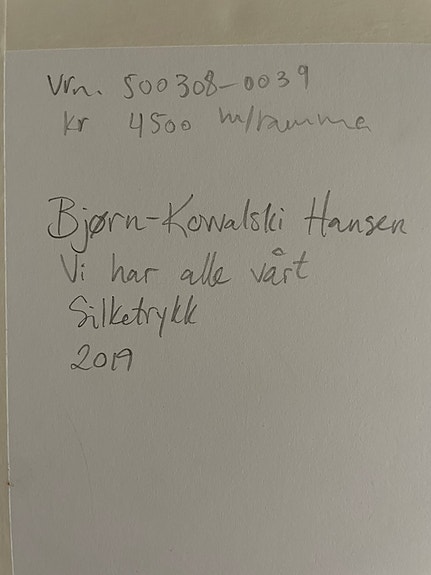 Vrn. 500308-0039
kr 4500 m/ramme
Bjørn-Kowalski Hansen
Vi har alle vårt
Silketrykk
2019